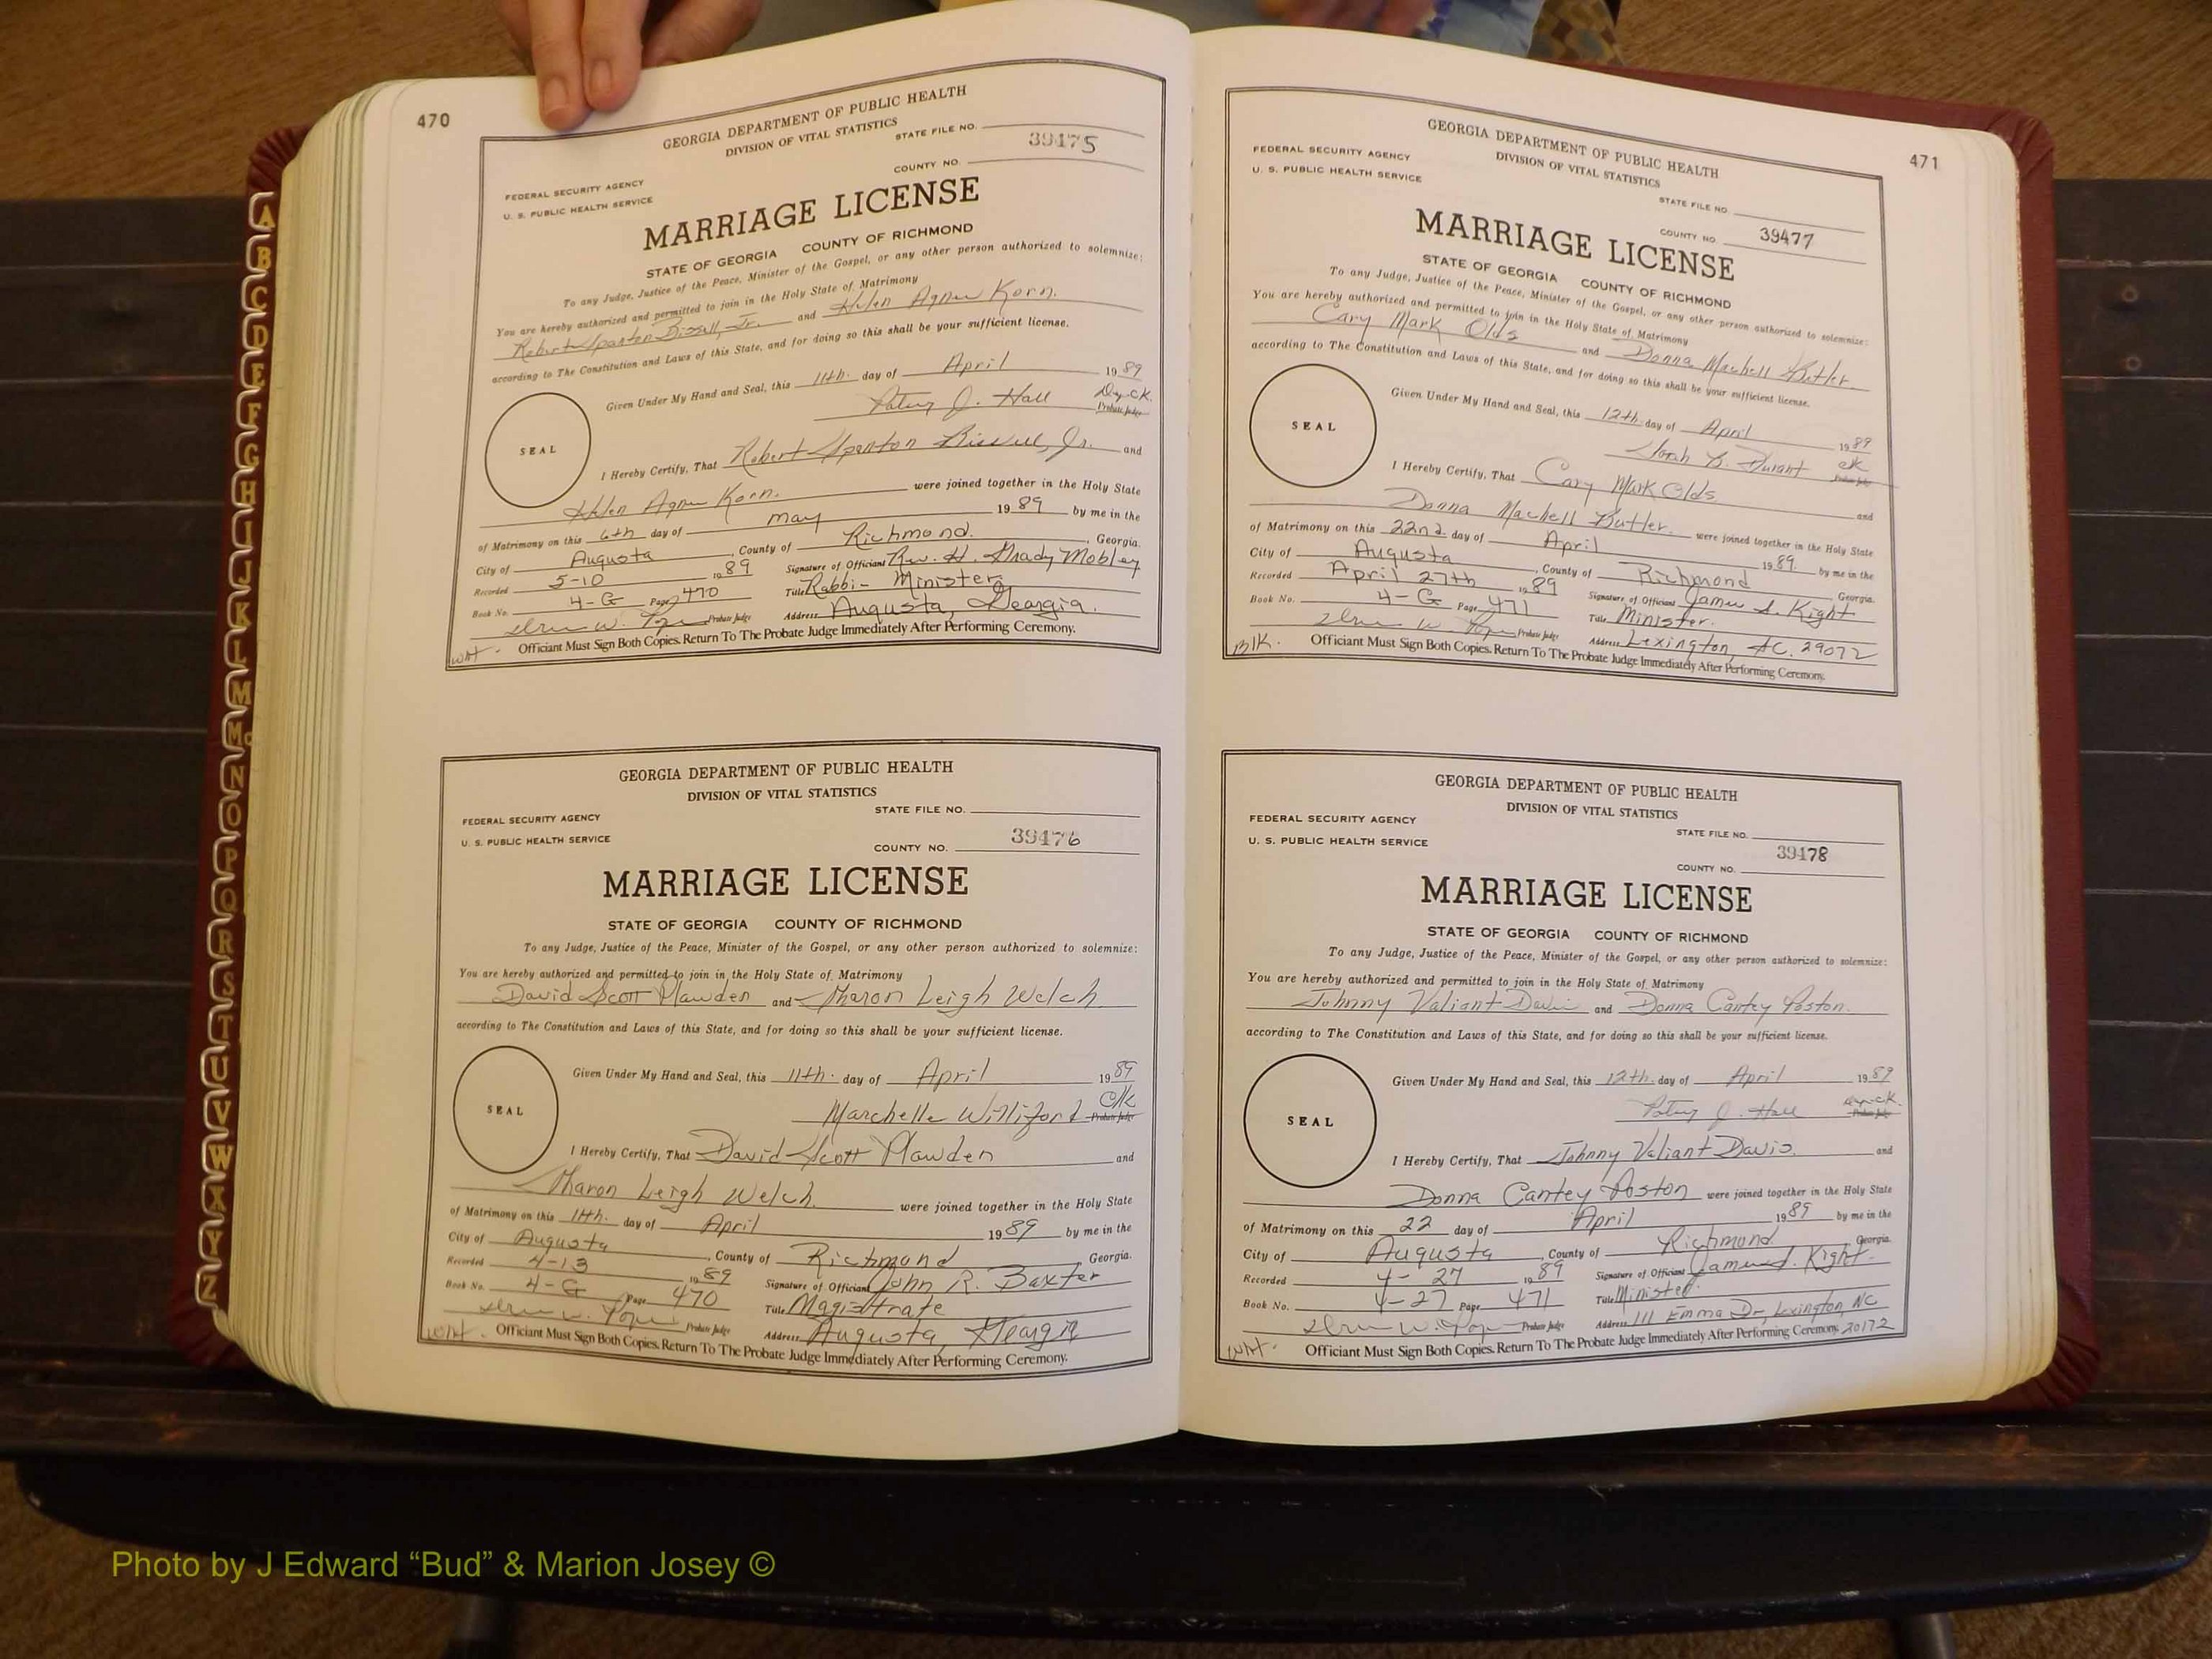 470
GEORGIA DEPARTMENT OF PUBLIC HEALTH
DIVISION OF VITAL STATISTICS
STATE FILE NO.
39475
COUNTY NO.
FEDERAL SECURITY AGENCY
U. S. PUBLIC HEALTH SERVICE
MARRIAGE LICENSE
STATE OF GEORGIA COUNTY OF RICHMOND
To any Judge, Justice of the Peace, Minister of the Gospel, or any other person authorized to solemnize:
You are hereby authorized and permitted to join in the Holy State of Matrimony
Robert Bissell, Jr. and Helen Agnew Korn.
according to The Constitution and Laws of this State, and for doing so this shall be your sufficient license.
Given Under My Hand and Seal, this 11th. day of April 1989
Patsy J. Hall Dep. CK. Probate Judge
SEAL
I Hereby Certify, That Robert Bissell, Jr. and
Helen Agnew Korn. were joined together in the Holy State
of Matrimony on this 6th day of May 1989 by me in the
City of Augusta, County of Richmond. Georgia.
Recorded 5-10 1989 Signature of Officiant Rev. H. Grady Mobley
Book No. 4-G Page 470 Title Rabbi - Minister
Probate Judge Address Augusta, Georgia.
Wht. Officiant Must Sign Both Copies. Return To The Probate Judge Immediately After Performing Ceremony.
GEORGIA DEPARTMENT OF PUBLIC HEALTH
DIVISION OF VITAL STATISTICS
STATE FILE NO.
FEDERAL SECURITY AGENCY
U. S. PUBLIC HEALTH SERVICE
COUNTY NO. 39476
MARRIAGE LICENSE
STATE OF GEORGIA COUNTY OF RICHMOND
To any Judge, Justice of the Peace, Minister of the Gospel, or any other person authorized to solemnize:
You are hereby authorized and permitted to join in the Holy State of Matrimony
David Scott Plawden and Sharon Leigh Welch
according to The Constitution and Laws of this State, and for doing so this shall be your sufficient license.
Given Under My Hand and Seal, this 11th. day of April 1989
Marchelle Williford Clk Probate Judge
SEAL
I Hereby Certify, That David Scott Plawden and
Sharon Leigh Welch. were joined together in the Holy State
of Matrimony on this 11th. day of April 1989 by me in the
City of Augusta, County of Richmond Georgia.
Recorded 4-13 1989 Signature of Officiant John R. Baxter
Book No. 4-G Page 470 Title Magistrate
Probate Judge Address Augusta, Georgia
Wht. Officiant Must Sign Both Copies. Return To The Probate Judge Immediately After Performing Ceremony.
471
GEORGIA DEPARTMENT OF PUBLIC HEALTH
DIVISION OF VITAL STATISTICS
FEDERAL SECURITY AGENCY
U. S. PUBLIC HEALTH SERVICE
STATE FILE NO.
COUNTY NO. 39477
MARRIAGE LICENSE
STATE OF GEORGIA COUNTY OF RICHMOND
To any Judge, Justice of the Peace, Minister of the Gospel, or any other person authorized to solemnize:
You are hereby authorized and permitted to join in the Holy State of Matrimony
Cary Mark Olds and Donna Machell Butler.
according to The Constitution and Laws of this State, and for doing so this shall be your sufficient license.
Given Under My Hand and Seal, this 12th. day of April 1989
Sarah B. Durant CK Probate Judge
SEAL
I Hereby Certify, That Cary Mark Olds and
Donna Machell Butler. were joined together in the Holy State
of Matrimony on this 22nd. day of April 1989. by me in the
City of Augusta, County of Richmond Georgia.
Recorded April 27th 1989 Signature of Officiant James S. Kight
Book No. 4-G Page 471 Title Minister.
Probate Judge Address Lexington, SC. 29072
Blk. Officiant Must Sign Both Copies. Return To The Probate Judge Immediately After Performing Ceremony.
GEORGIA DEPARTMENT OF PUBLIC HEALTH
DIVISION OF VITAL STATISTICS
FEDERAL SECURITY AGENCY
U. S. PUBLIC HEALTH SERVICE
STATE FILE NO.
39478
COUNTY NO.
MARRIAGE LICENSE
STATE OF GEORGIA COUNTY OF RICHMOND
To any Judge, Justice of the Peace, Minister of the Gospel, or any other person authorized to solemnize:
You are hereby authorized and permitted to join in the Holy State of Matrimony
Johnny Valiant Davis and Donna Cantey Poston.
according to The Constitution and Laws of this State, and for doing so this shall be your sufficient license.
Given Under My Hand and Seal, this 12th. day of April 1989
Patsy J. Hall Dep. CK. Probate Judge
SEAL
I Hereby Certify, That Johnny Valiant Davis. and
Donna Cantey Poston were joined together in the Holy State
of Matrimony on this 22 day of April 1989 by me in the
City of Augusta, County of Richmond Georgia.
Recorded 4-27 1989 Signature of Officiant James S. Kight.
Book No. 4-27 Page 471 Title Minister.
Probate Judge Address 111 Emma Dr., Lexington, NC 20172
Wht. Officiant Must Sign Both Copies. Return To The Probate Judge Immediately After Performing Ceremony.
A
B
C
D
E
F
G
H
I
J
K
L
M
Mc
N
O
P
Q
R
S
T
U
V
W
X
Y
Z
Photo by J Edward “Bud” & Marion Josey ©